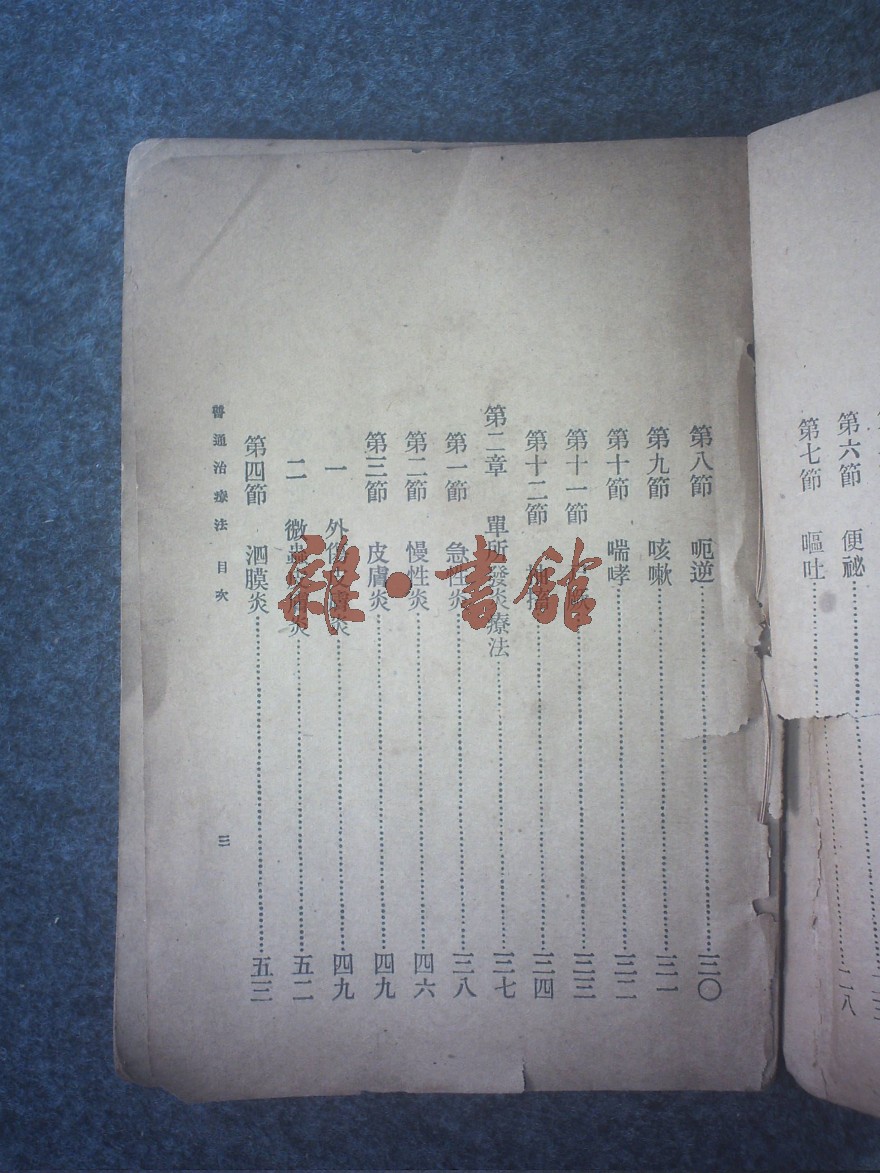 第六節 便祕……二八
第七節 嘔吐……
第八節 呃逆……三〇
第九節 咳嗽……三一
第十節 喘哮……三二
第十一節……三三
第十二節……三四
第二章 單所發炎療法……三七
第一節 急性炎……三八
第二節 慢性炎……四六
第三節 皮膚炎……四九
一 外傷皮膚炎……四九
二 微蟲皮膚炎……五二
第四節 泗膜炎……五三
普通治療法 目次 三
雜·書館